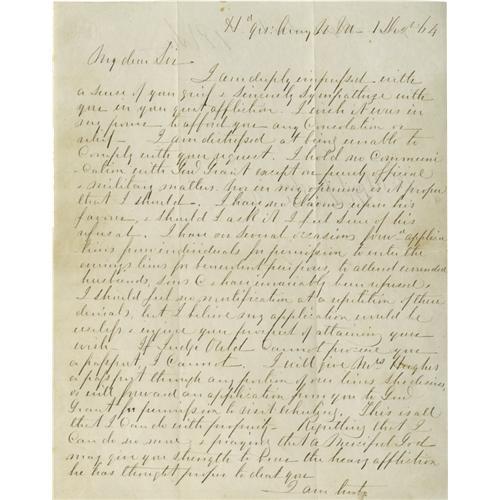 Hd Qrs: Army No Va - 1 Sept 64
My dear Sir
I am deeply impressed with
a sense of your grief & sincerely sympathise with
you in your great affliction. I wish it was in
my power to afford you any Consolation or
relief - I am distressed at being unable to
Comply with your request. I hold no Communi
=cation with Genl Grant except on purely official
& military matters. nor in my opinion is it proper
that I should. I have no Claims upon his
favour, & should I ask it I feel sure of his
refusal. I have on several occasions forwd applica
tions from individuals for permission to enter the
enemys lines for benevolent purposes, to attend wounded
husbands, sons & have invariably been refused.
I should feel no mortification at a repetition of these
denials, but I believe my application would be
useless & injure your prospect of attaining your
wish - If Judge Ould Cannot procure you
a passport, I Cannot. I will give Mrs Hughes
a passport through any portion of our lines she desires,
or will forward an application from you to Genl
Grant for permission to visit This is all
that I Can do with propriety - Regretting that I
Can do no more & praying that a Merciful God
may give you strength to bear the heavy affliction
he has thought proper to deal you
I am